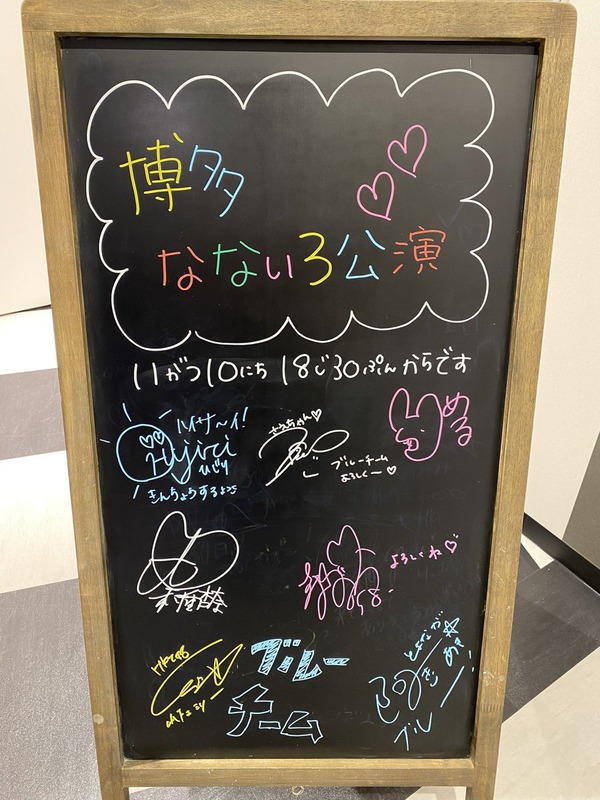 博多
なないろ公演
11がつ10にち 18じ30ぷんからです
ハイサーイ!
Hijiri
ひじり
きんちょうするよぉ
さえちゃん♡
ブルーチーム
よろしくー♡
める
よろしくね♡
HKT48
ブルー
チーム
とよなが
あき
ブルー!